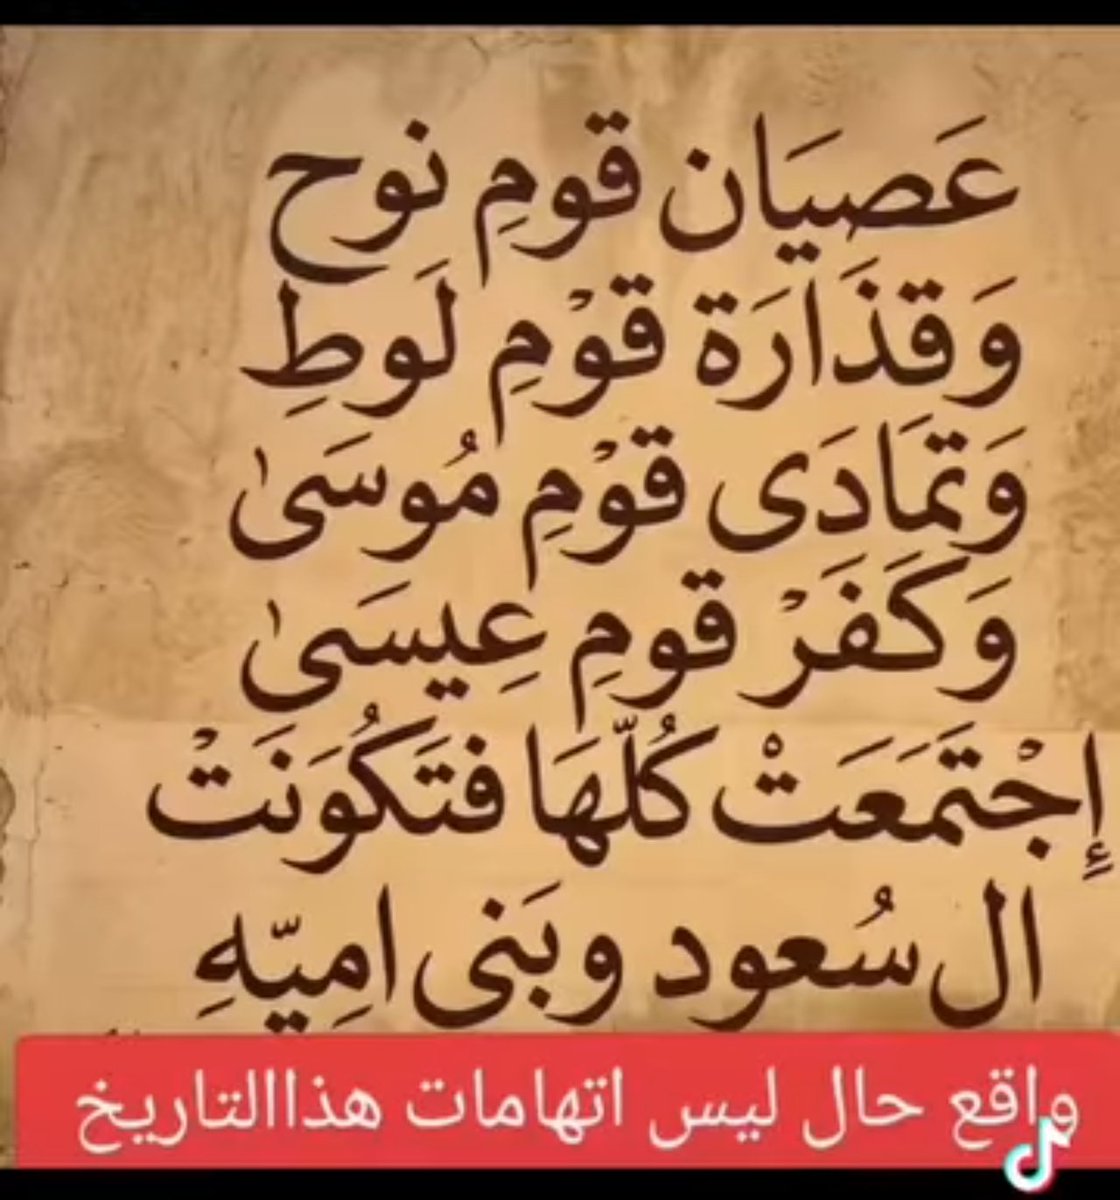 عَصيَان قومِ نوح
وَقذَارَة قوْمِ لَوطِ
وَتمَادَى قوْمِ مُوسَىٰ
وَكَفَرْ قومِ عِيسَىٰ
إِجْتَمَعَتْ كُلّهَا فتَكُوَنَتْ
ال سُعود وبَنى امِيّهِ
واقع حال ليس اتهامات هذاالتاريخ